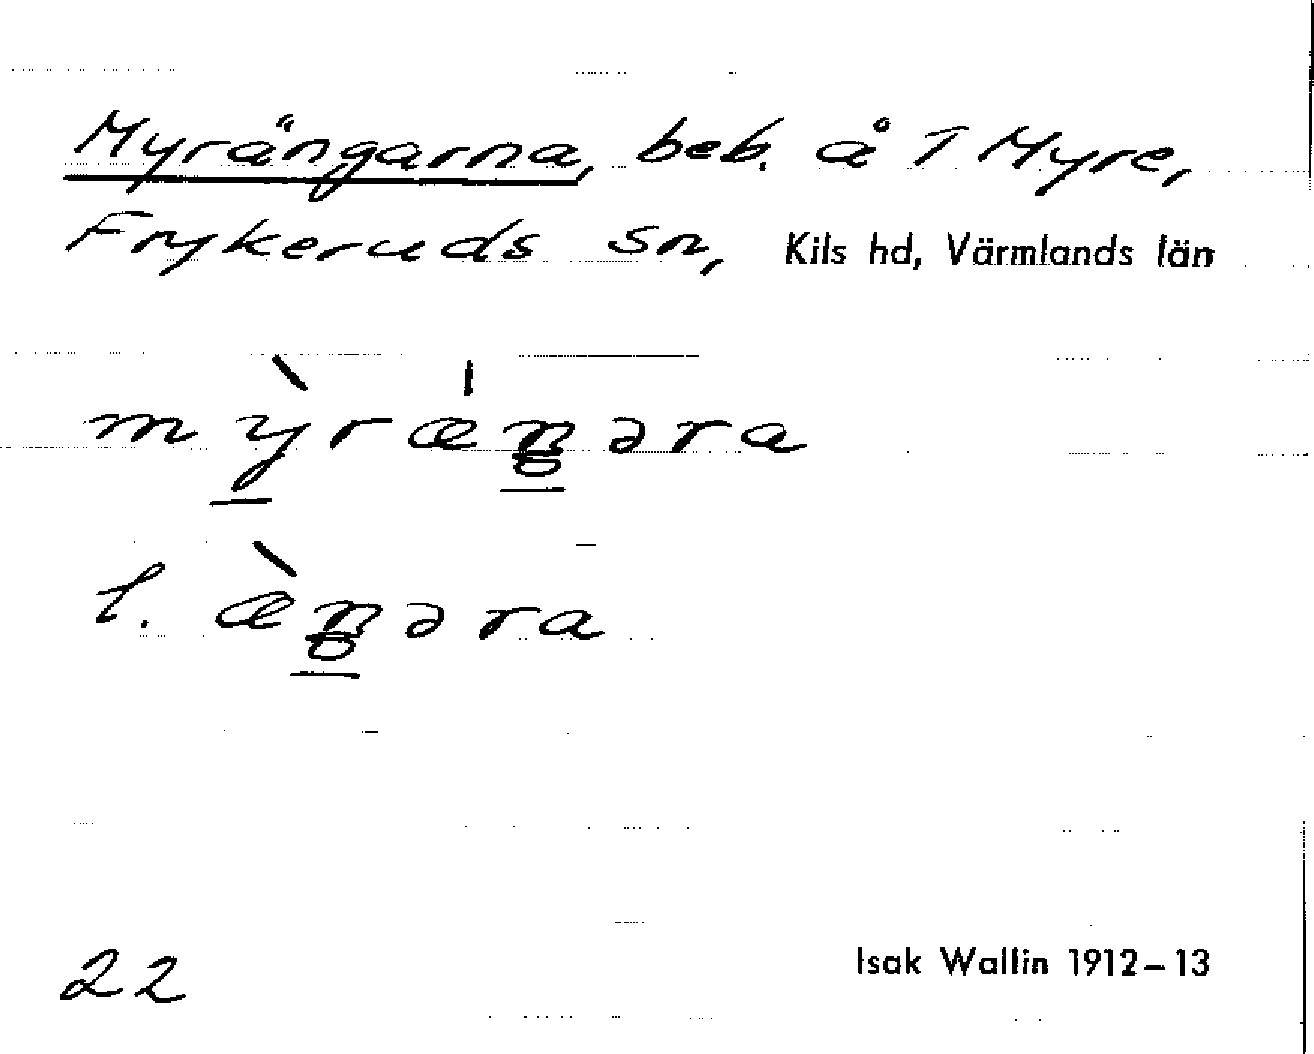 Myrängarna, beb. å 1 Myre,
Frykeruds sn, Kils hd, Värmlands län
mỳræ̍ŋəra
l. æ̀ŋəra
22
Isak Wallin 1912–13